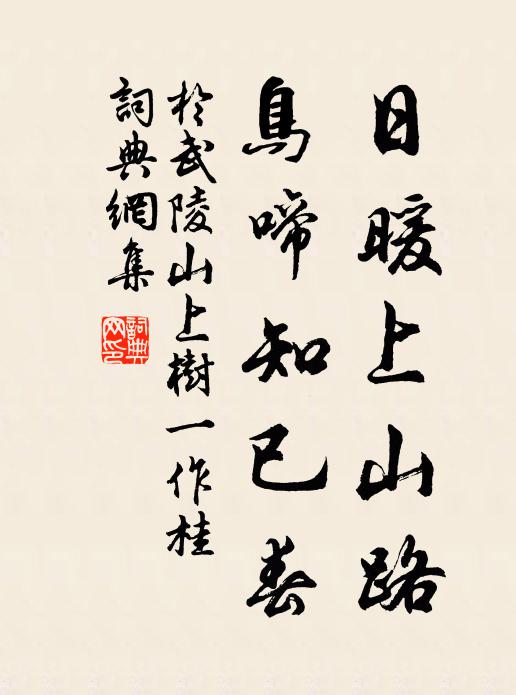 日暖上山路
鳥啼知已春
於武陵山上樹一作桂
詞典網集
詞典网印